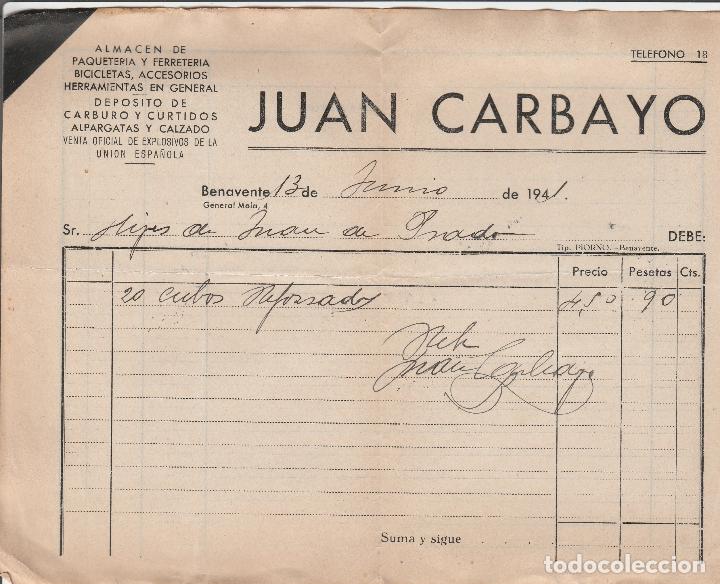 ALMACEN DE
PAQUETERIA Y FERRETERIA
BICICLETAS, ACCESORIOS
HERRAMIENTAS EN GENERAL
DEPOSITO DE
CARBURO Y CURTIDOS
ALPARGATAS Y CALZADO
VENTA OFICIAL DE EXPLOSIVOS DE LA
UNION ESPAÑOLA
TELEFONO 18
JUAN CARBAYO
Benavente 13 de Junio de 1941.
General Mola, 4
Sr. Hijos de Juan de Prado DEBE:
Tip. PIORNO.-Benavente.
Precio Pesetas Cts.
20 cubos Reforzados 4,50 90
Juan Carbayo
Suma y sigue
todocoleccion